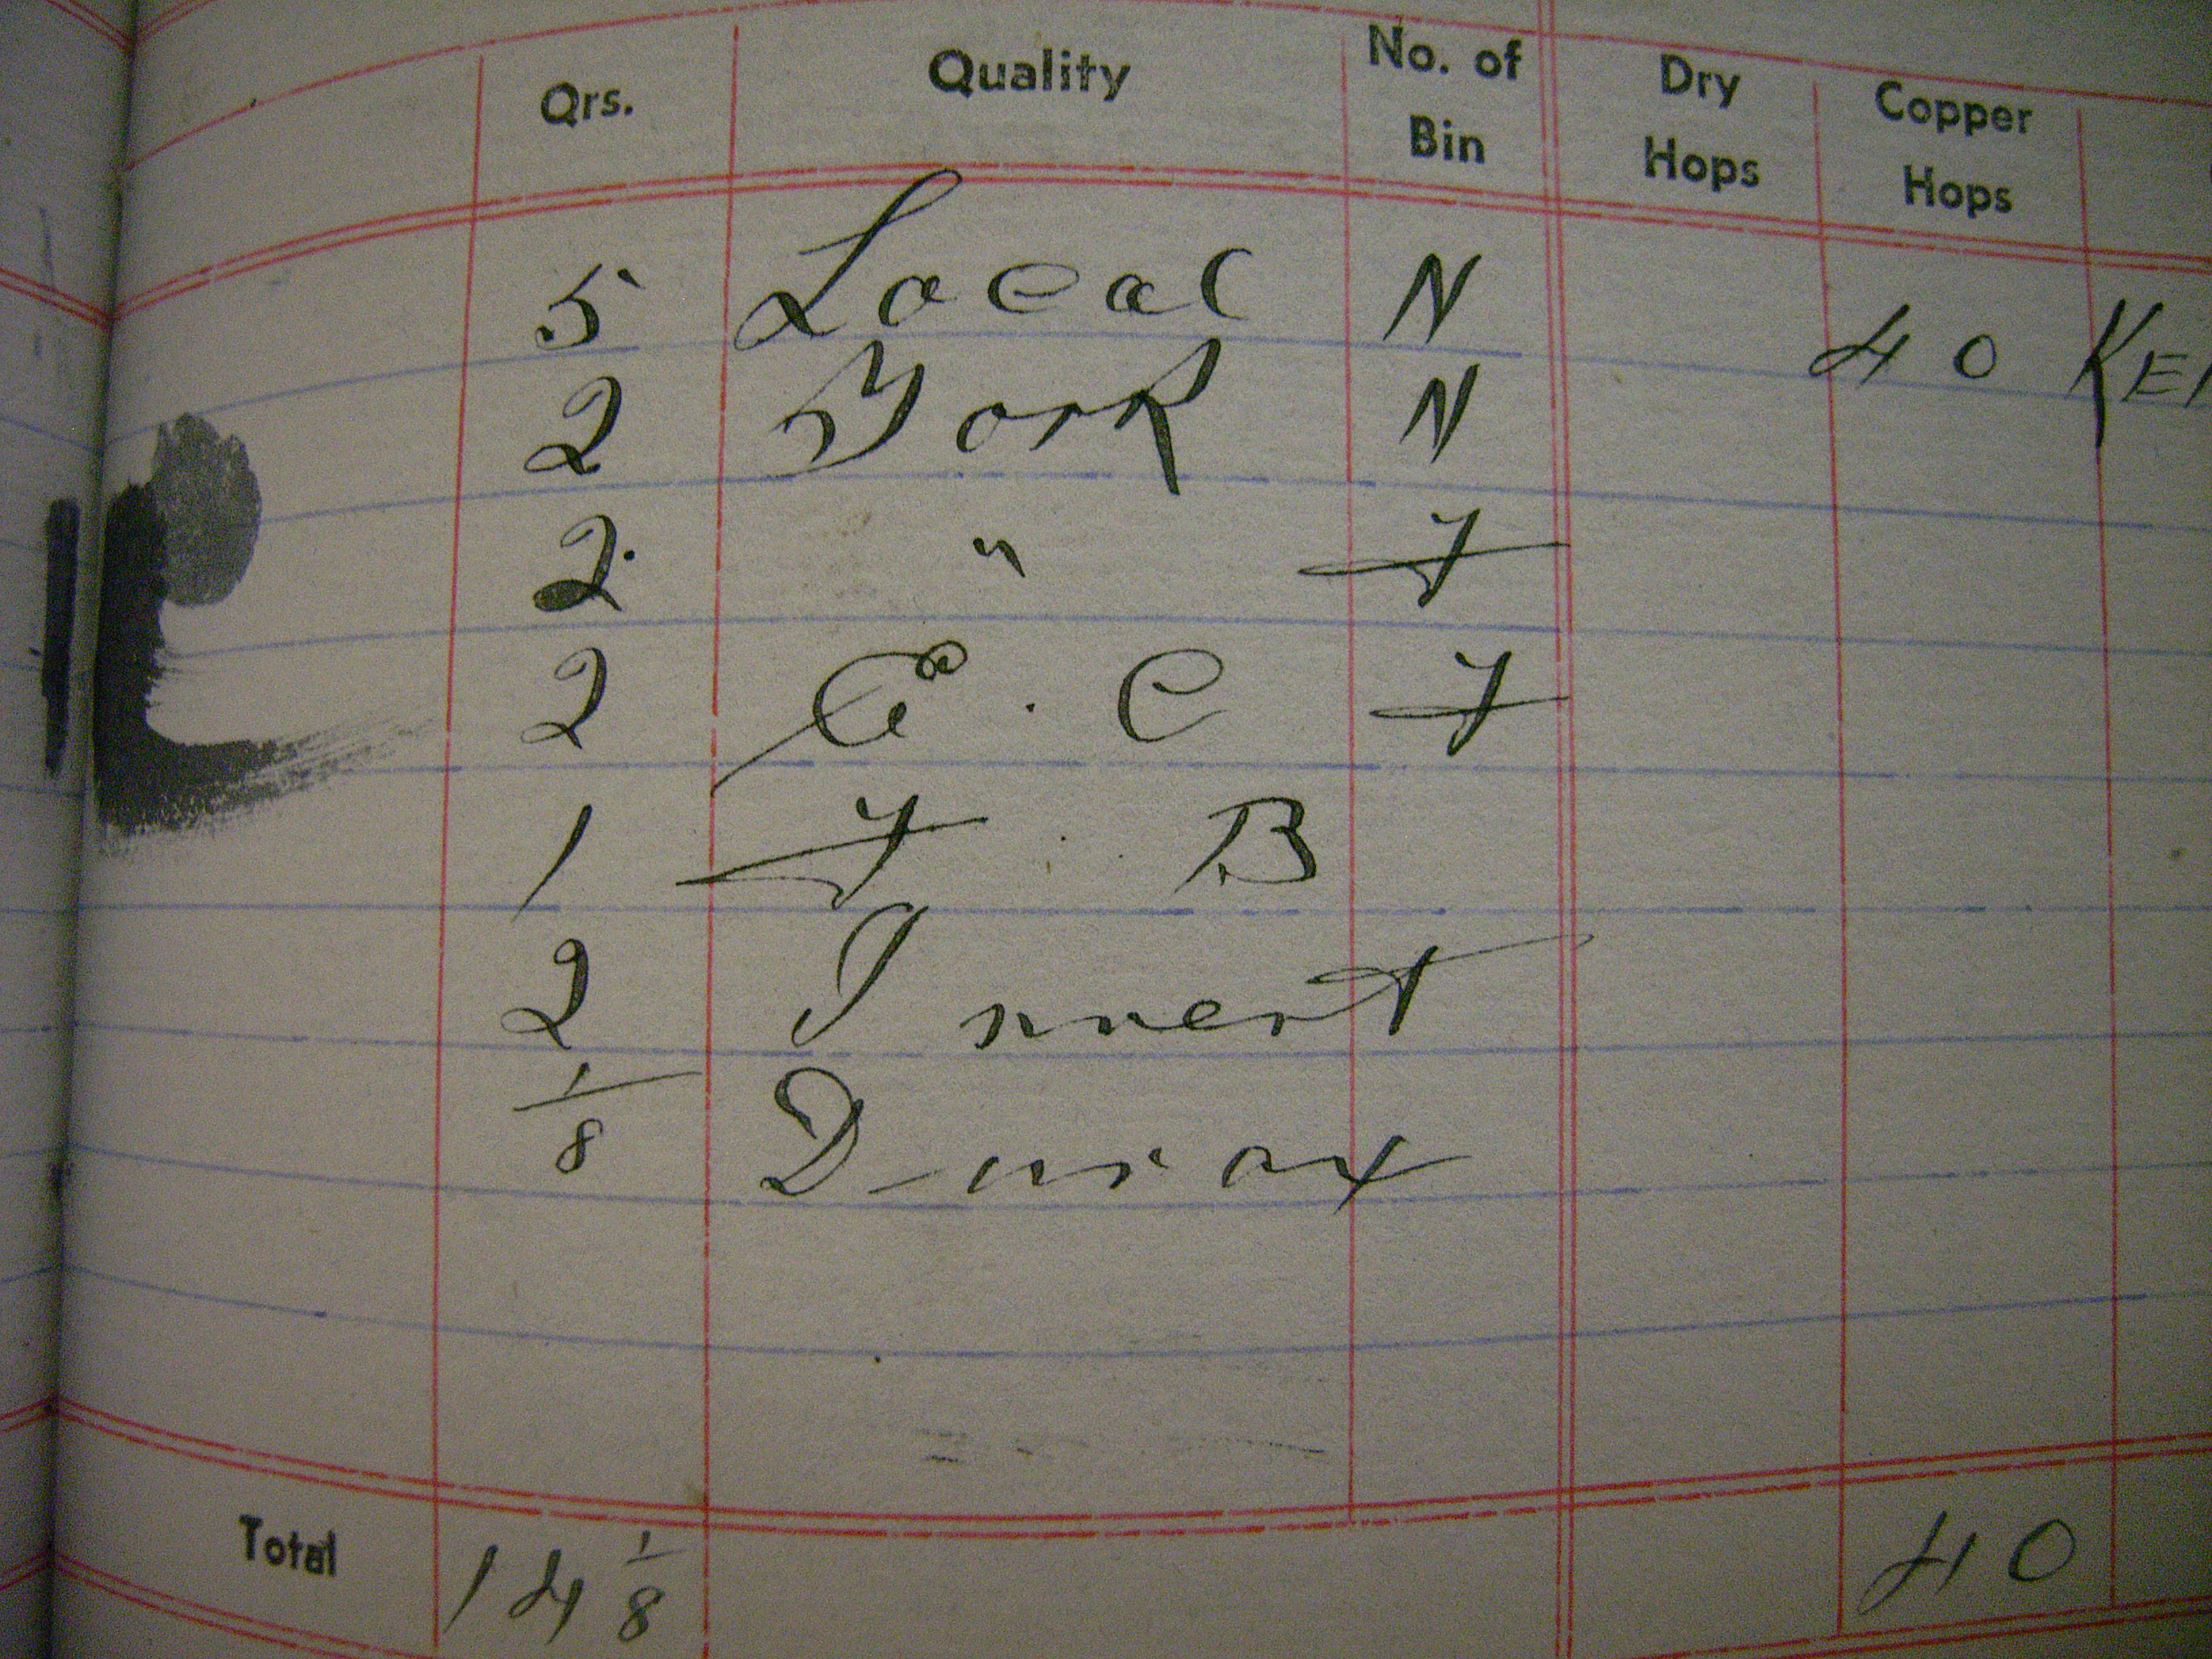 Qrs. Quality No. of Bin Dry Hops Copper Hops
5 Local N 40 KE
2 York N
2 " F
2 G. C F
1 F B
2 Invert
1/8 D-urax
Total 14 1/8 40